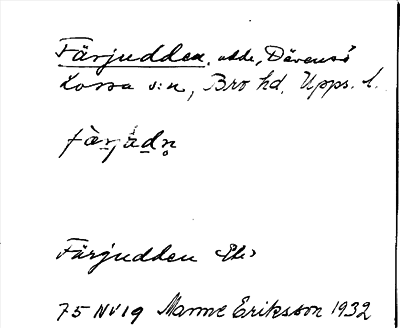 Färjudden, udde, Dävensö
Lossa s:n, Bro hd. Upps. l.
fæ̀rjàdn̥
Färjudden Ek
75 NV 19 Manne Eriksson 1932